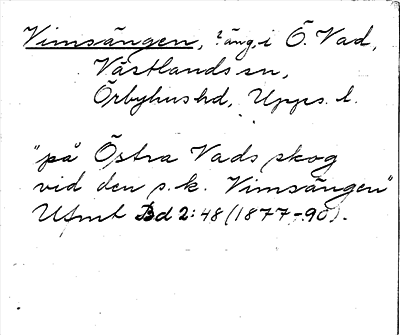 Vimsängen, ?äng, i Ö. Vad,
Västlands sn,
Örbyhus hd, Upps. l.
"på Östra Vads skog
vid den s.k. Vimsängen"
Utmt Bd 2:48 (1877-90).